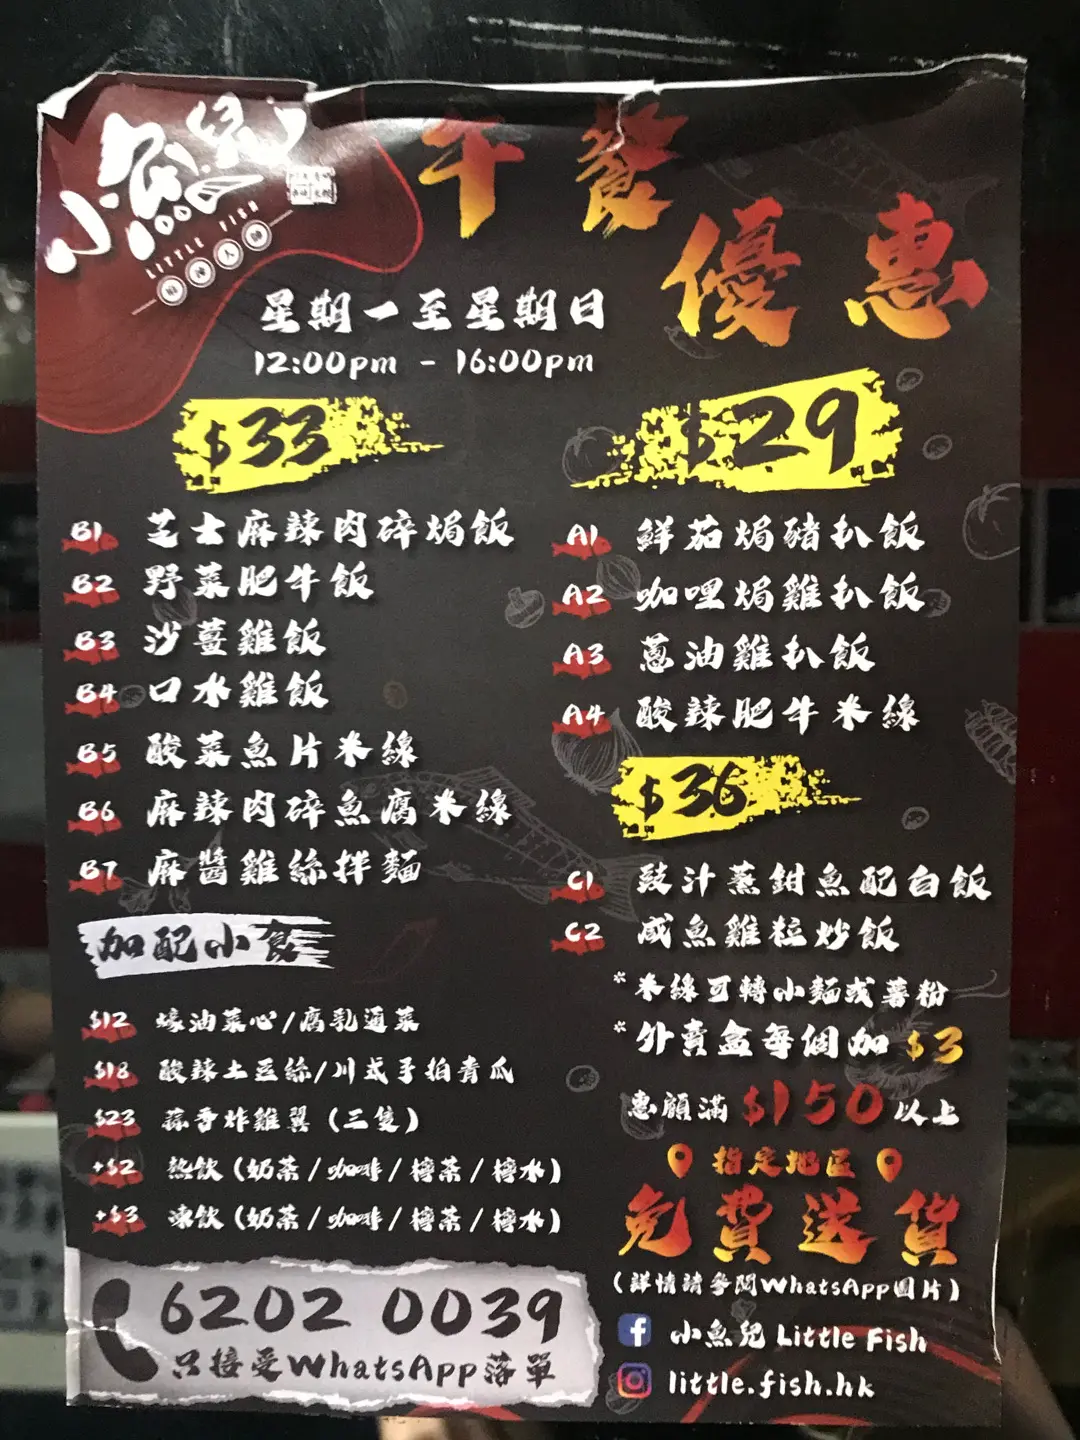 小魚兒
LITTLE FISH
麻辣大師
午餐
優惠
星期一至星期日
12:00pm - 16:00pm
$33
B1 芝士麻辣肉碎焗飯
B2 野菜肥牛飯
B3 沙薑雞飯
B4 口水雞飯
B5 酸菜魚片米線
B6 麻辣肉碎魚腐米線
B7 麻醬雞絲拌麵
加配小食
$12 蠔油菜心/腐乳通菜
$18 酸辣土豆絲/川式手拍青瓜
$23 蒜香炸雞翼 (三隻)
+$2 熱飲 (奶茶/咖啡/檸茶/檸水)
+$3 凍飲 (奶茶/咖啡/檸茶/檸水)
6202 0039
只接受WhatsApp落單
$29
A1 鮮茄焗豬扒飯
A2 咖哩焗雞扒飯
A3 蔥油雞扒飯
A4 酸辣肥牛米線
$36
C1 豉汁蒸鉗魚配白飯
C2 咸魚雞粒炒飯
*米線可轉小麵或薯粉
*外賣盒每個加$3
惠顧滿$150以上
指定地區
免費送貨
(詳情請參閱WhatsApp圖片)
小魚兒 Little Fish
little.fish.hk